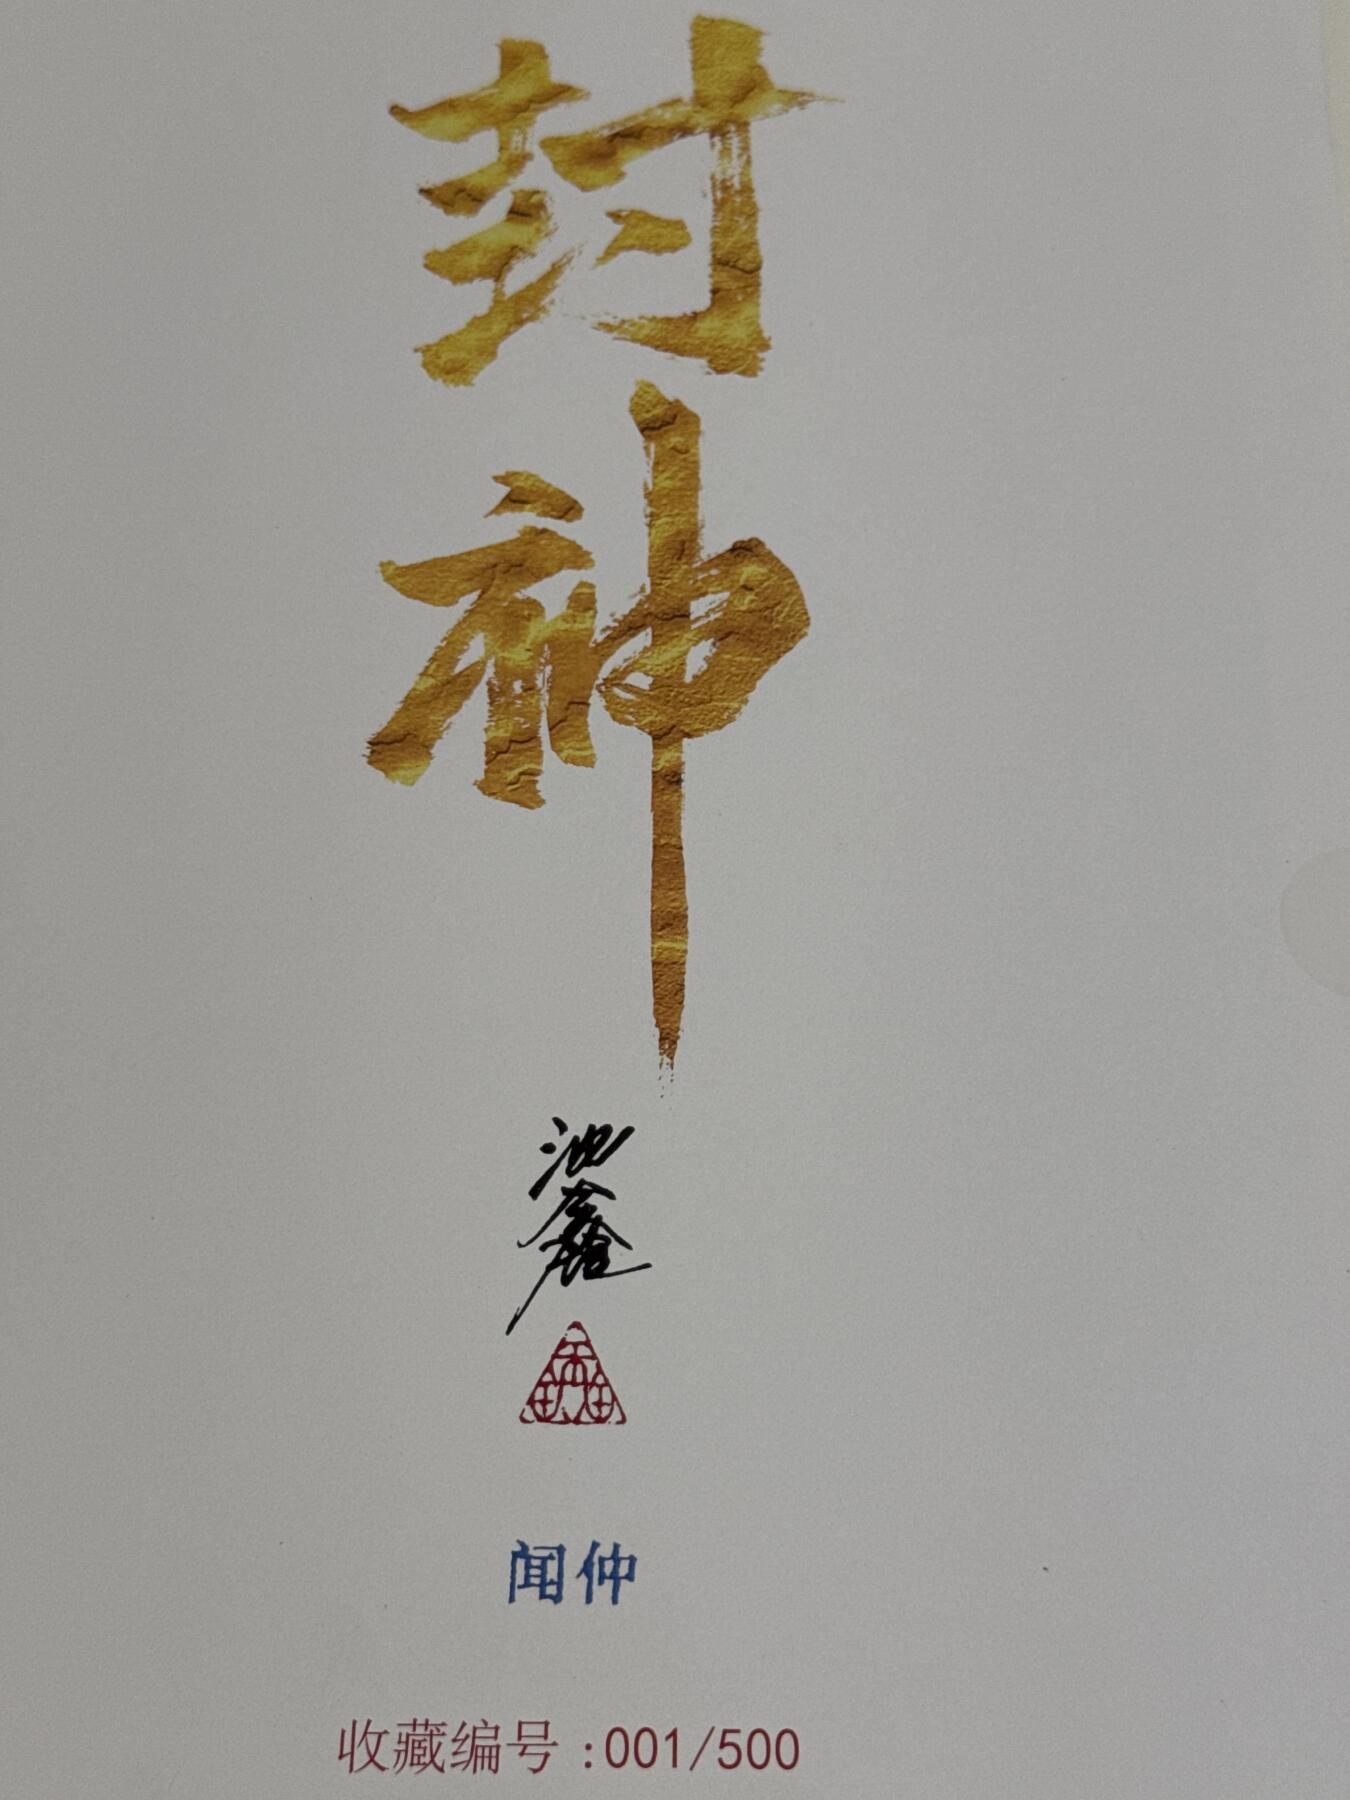 封神
池鑫
闻仲
收藏编号:001/500